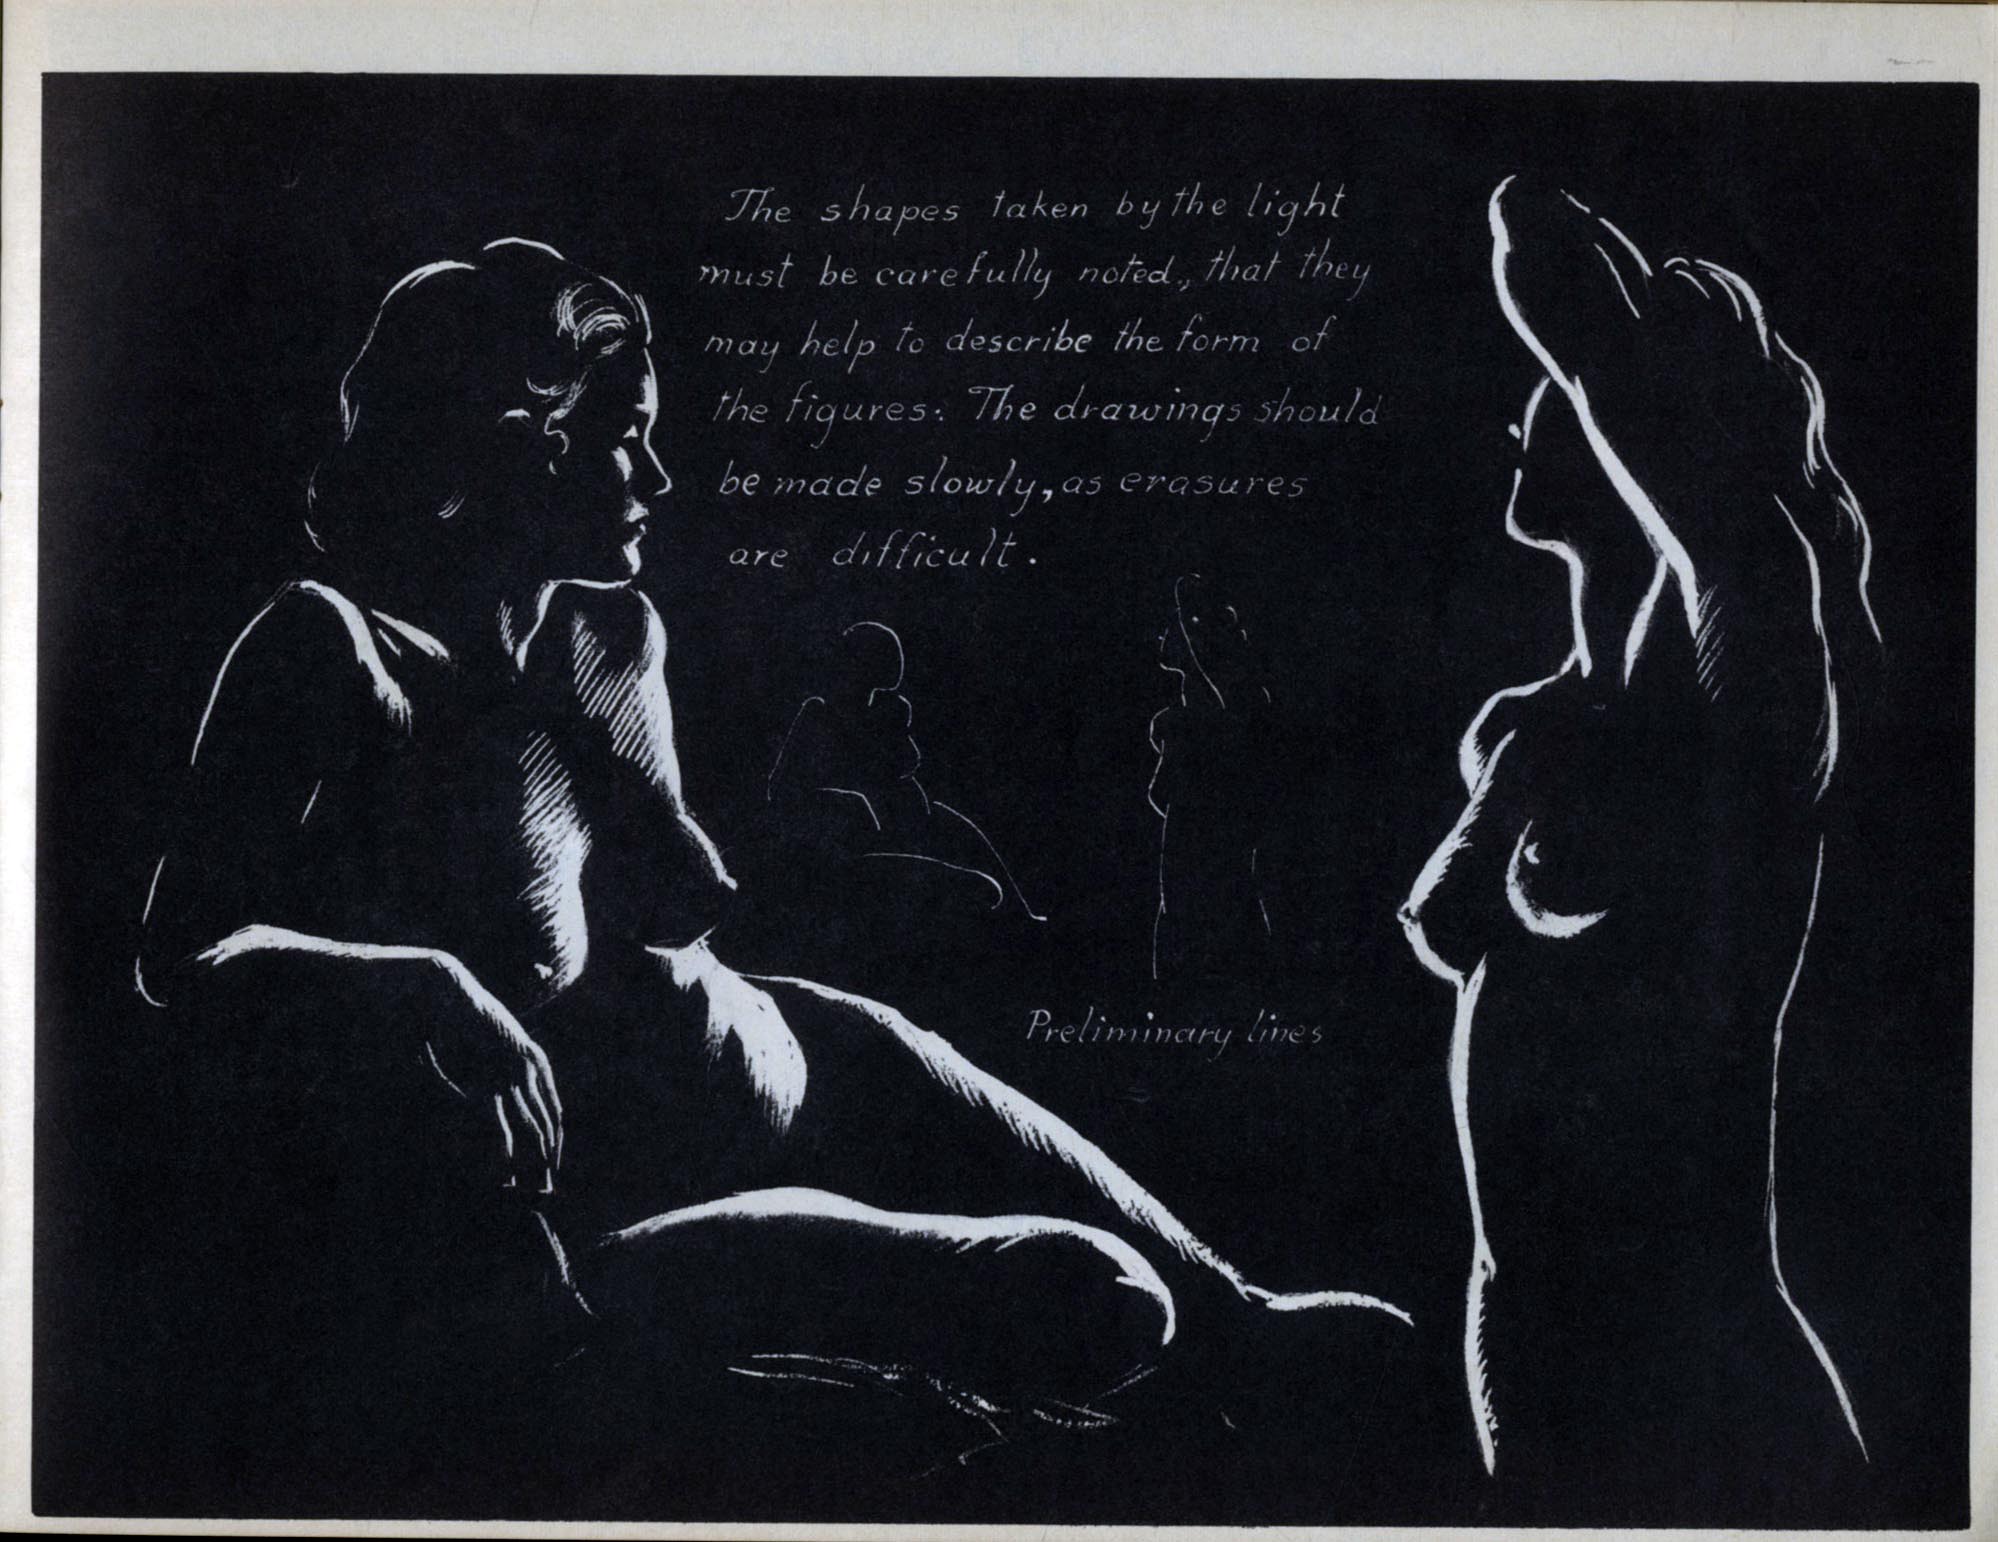 The shapes taken by the light
must be carefully noted, that they
may help to describe the form of
the figures. The drawings should
be made slowly, as erasures
are difficult.
Preliminary lines